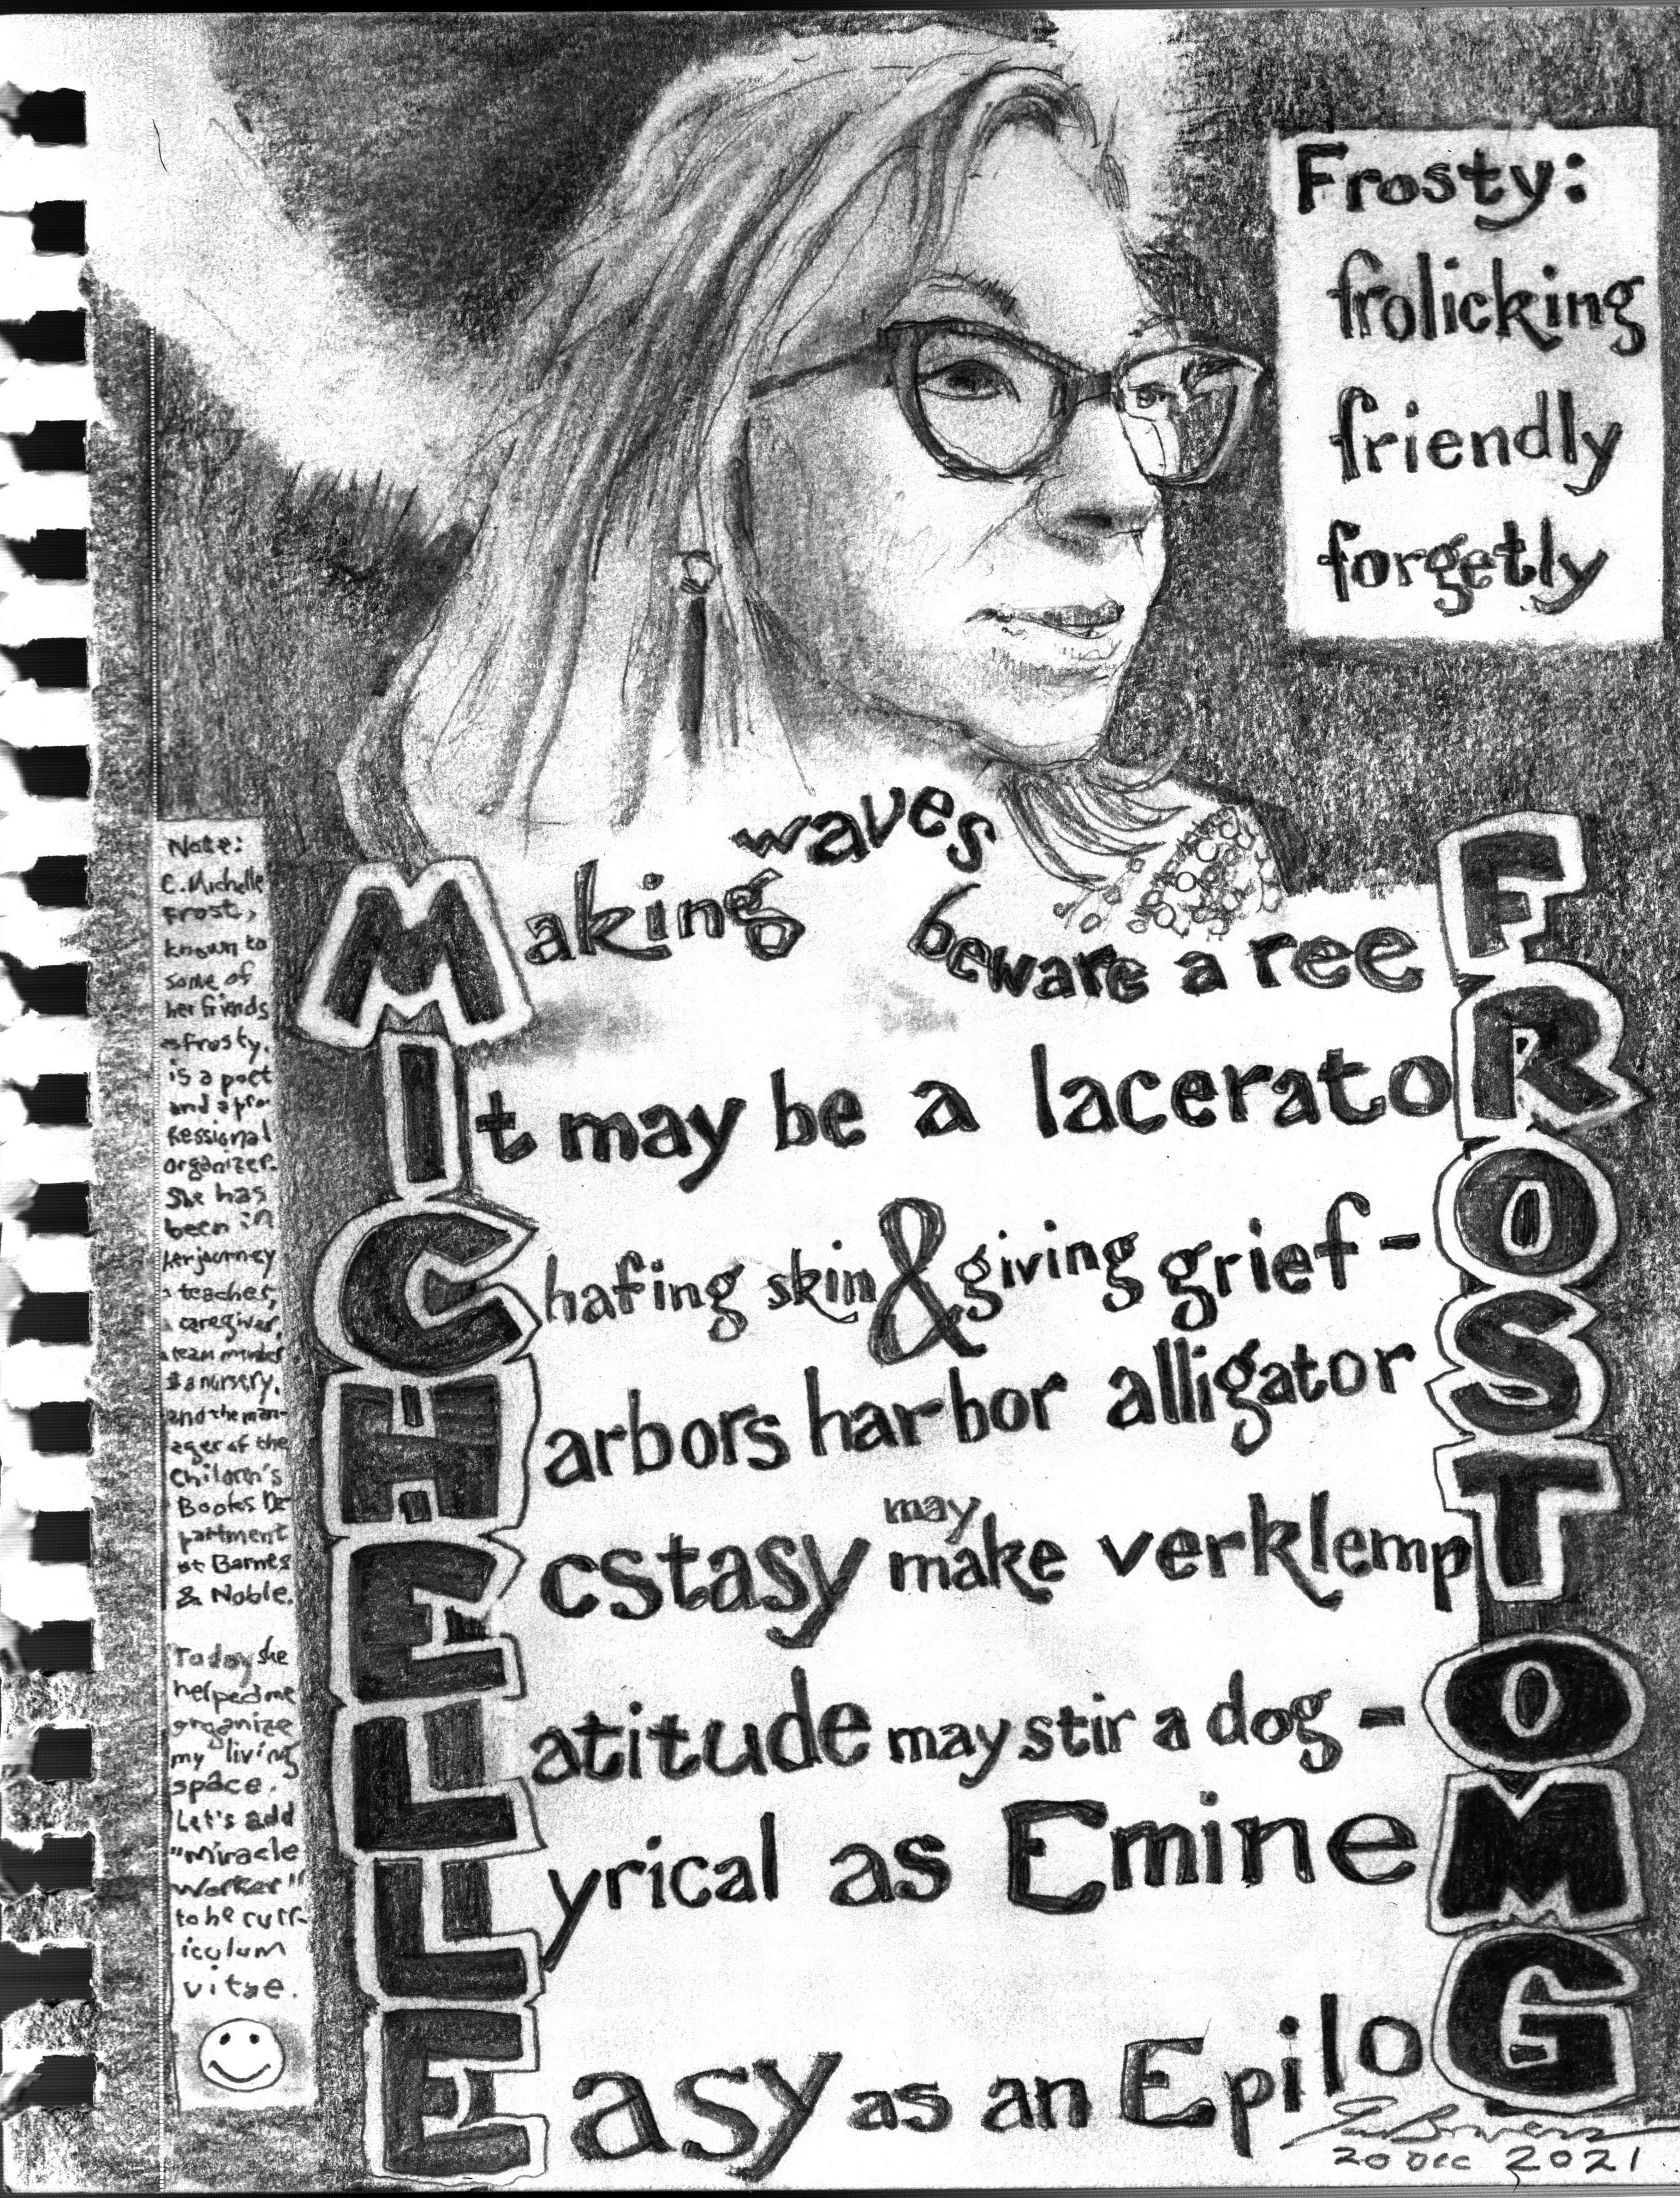 Frosty:
frolicking
friendly
forgetly
Making waves beware a reeF
It may be a laceratoR
Chafing skin & giving grief - O
Harbors harbor alligatorS
Ecstasy may make verklempT
Latitude may stir a dog - O
Lyrical as EmineM
Easy as an EpiloG
20 Dec 2021
Note:
C. Michelle
Frost,
known to
some of
her friends
as Frosty,
is a poet
and a pro-
fessional
organizer.
She has
been in
her journey
a teacher,
a caregiver,
a team member
@ a nursery,
and the man-
ager of the
Children's
Books De-
partment
at Barnes
& Noble.
Today she
helped me
organize
my living
space.
Let's add
"Miracle
Worker"
to he curr-
iculum
vitae.